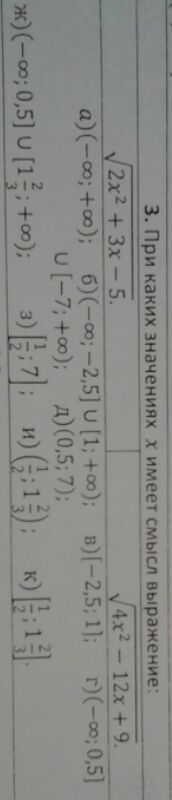 3. При каких значениях x имеет смысл выражение:
√2x² + 3x − 5. √4x² − 12x + 9.
а)(−∞; +∞); б)(−∞; −2,5] ∪ [1; +∞); в)[−2,5; 1]; г)(−∞; 0,5]
∪ [−7; +∞); д)(0,5; 7);
ж)(−∞; 0,5] ∪ [1 2/3; +∞); з) [1/2; 7]; и) (1/2; 1 2/3); к) [1/2; 1 2/3].